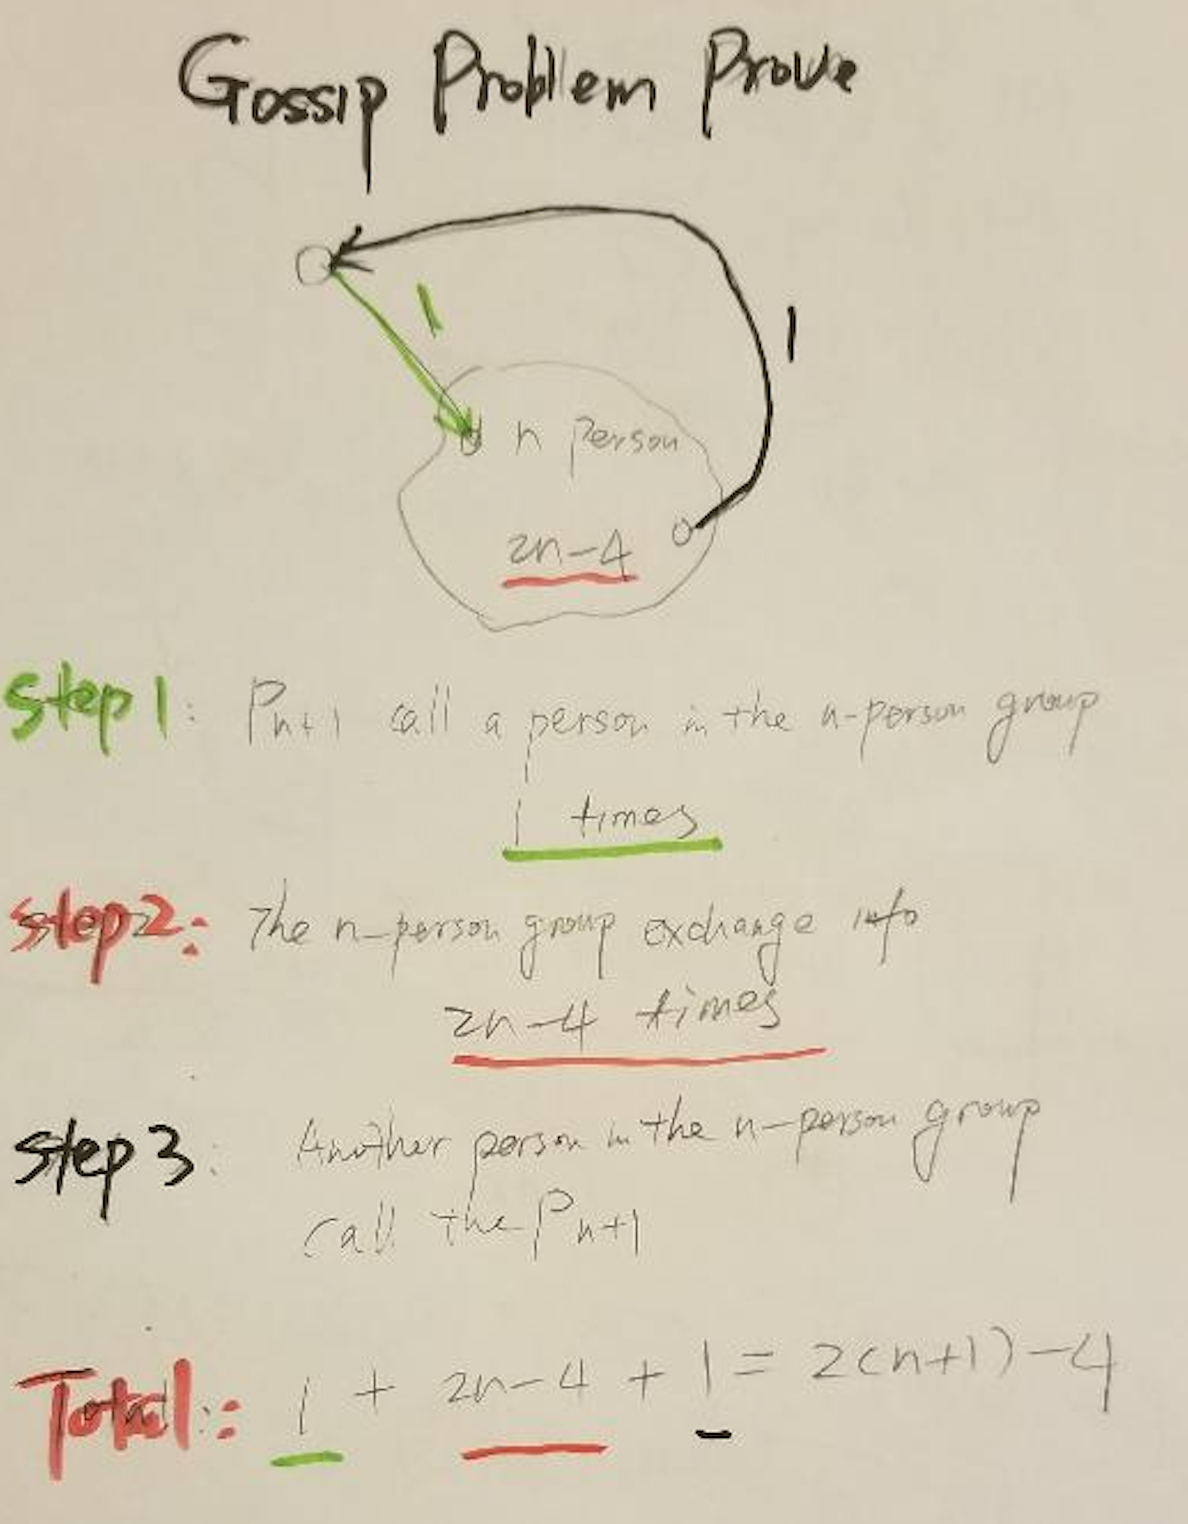 Gossip Problem Prove
1
1
n person
2n-4
Step 1: Pn+1 call a person in the n-person group
1 times
step2: The n-person group exchange info
2n-4 times
step 3: Another person in the n-person group
call the Pn+1
Total: 1 + 2n-4 + 1 = 2(n+1)-4